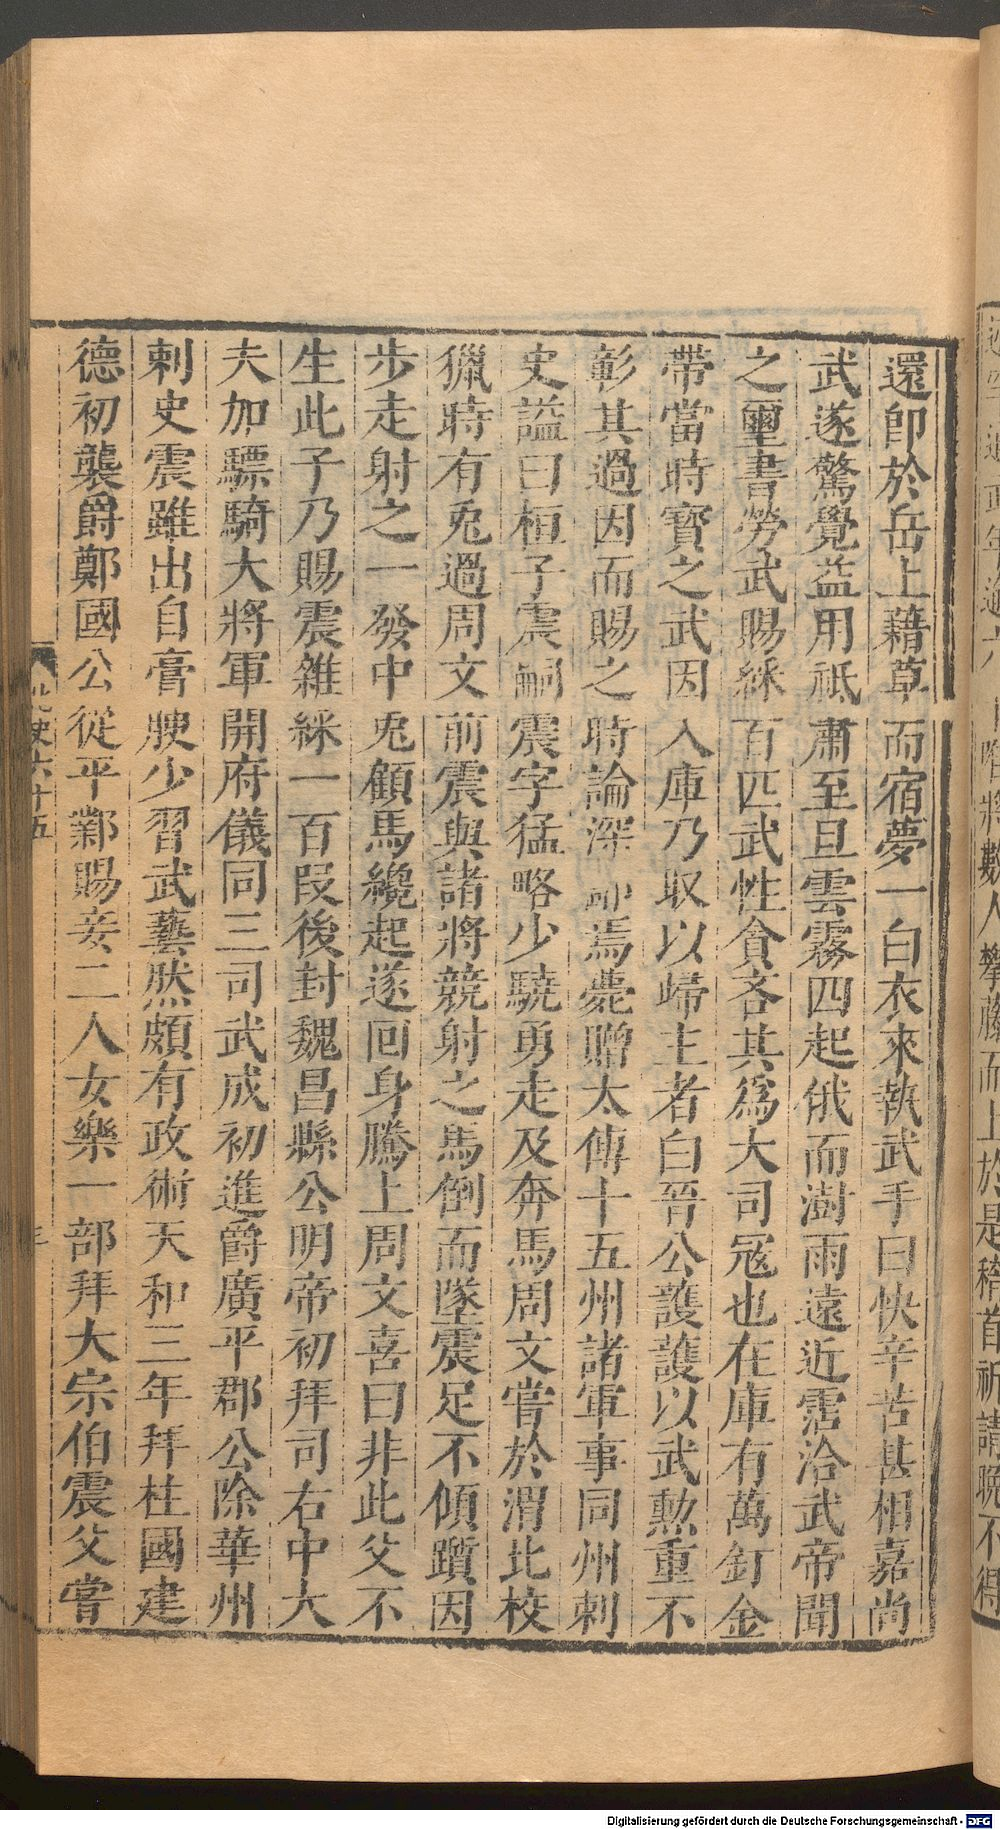 還卽於岳上藉草而宿夢一白衣來執武手曰快辛苦甚相嘉尚
武遂驚覺益用祗肅至旦雲霧四起俄而澍雨遠近霑洽武帝聞
之璽書勞武賜綵百匹武性貪吝其爲大司冦也在庫有萬釘金
帶當時寳之武因入庫乃取以歸主者白晉公護護以武勲重不
彰其過因而賜之時論深鄙焉薨贈太傅十五州諸軍事同州刺
史謚曰桓子震嗣震字猛略少驍勇走及奔馬周文嘗於渭北校
獵時有兎過周文前震與諸將競射之馬倒而墜震足不傾躓因
步走射之一發中兎顧馬纔起遂囘身騰上周文喜曰非此父不
生此子乃賜震雜綵一百段後封魏昌縣公明帝初拜司右中大
夫加驃騎大將軍開府儀同三司武成初進爵廣平郡公除華州
刺史震雖出自膏腴少習武藝然頗有政術天和三年拜柱國建
德初襲爵鄭國公從平鄴賜妾二人女樂一部拜大宗伯震父嘗
北史六十五
三
數人攀藤而上於是稽首祈請晩不得
Digitalisierung gefördert durch die Deutsche Forschungsgemeinschaft - DFG